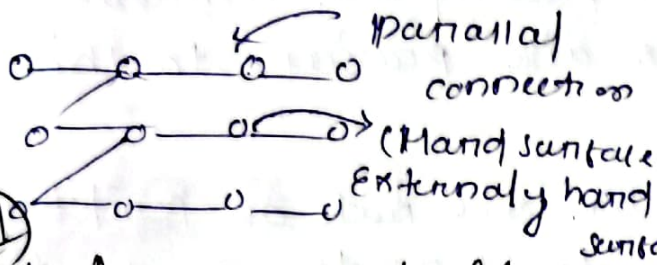 Parallal
connection
(Hand surface
Externaly hand